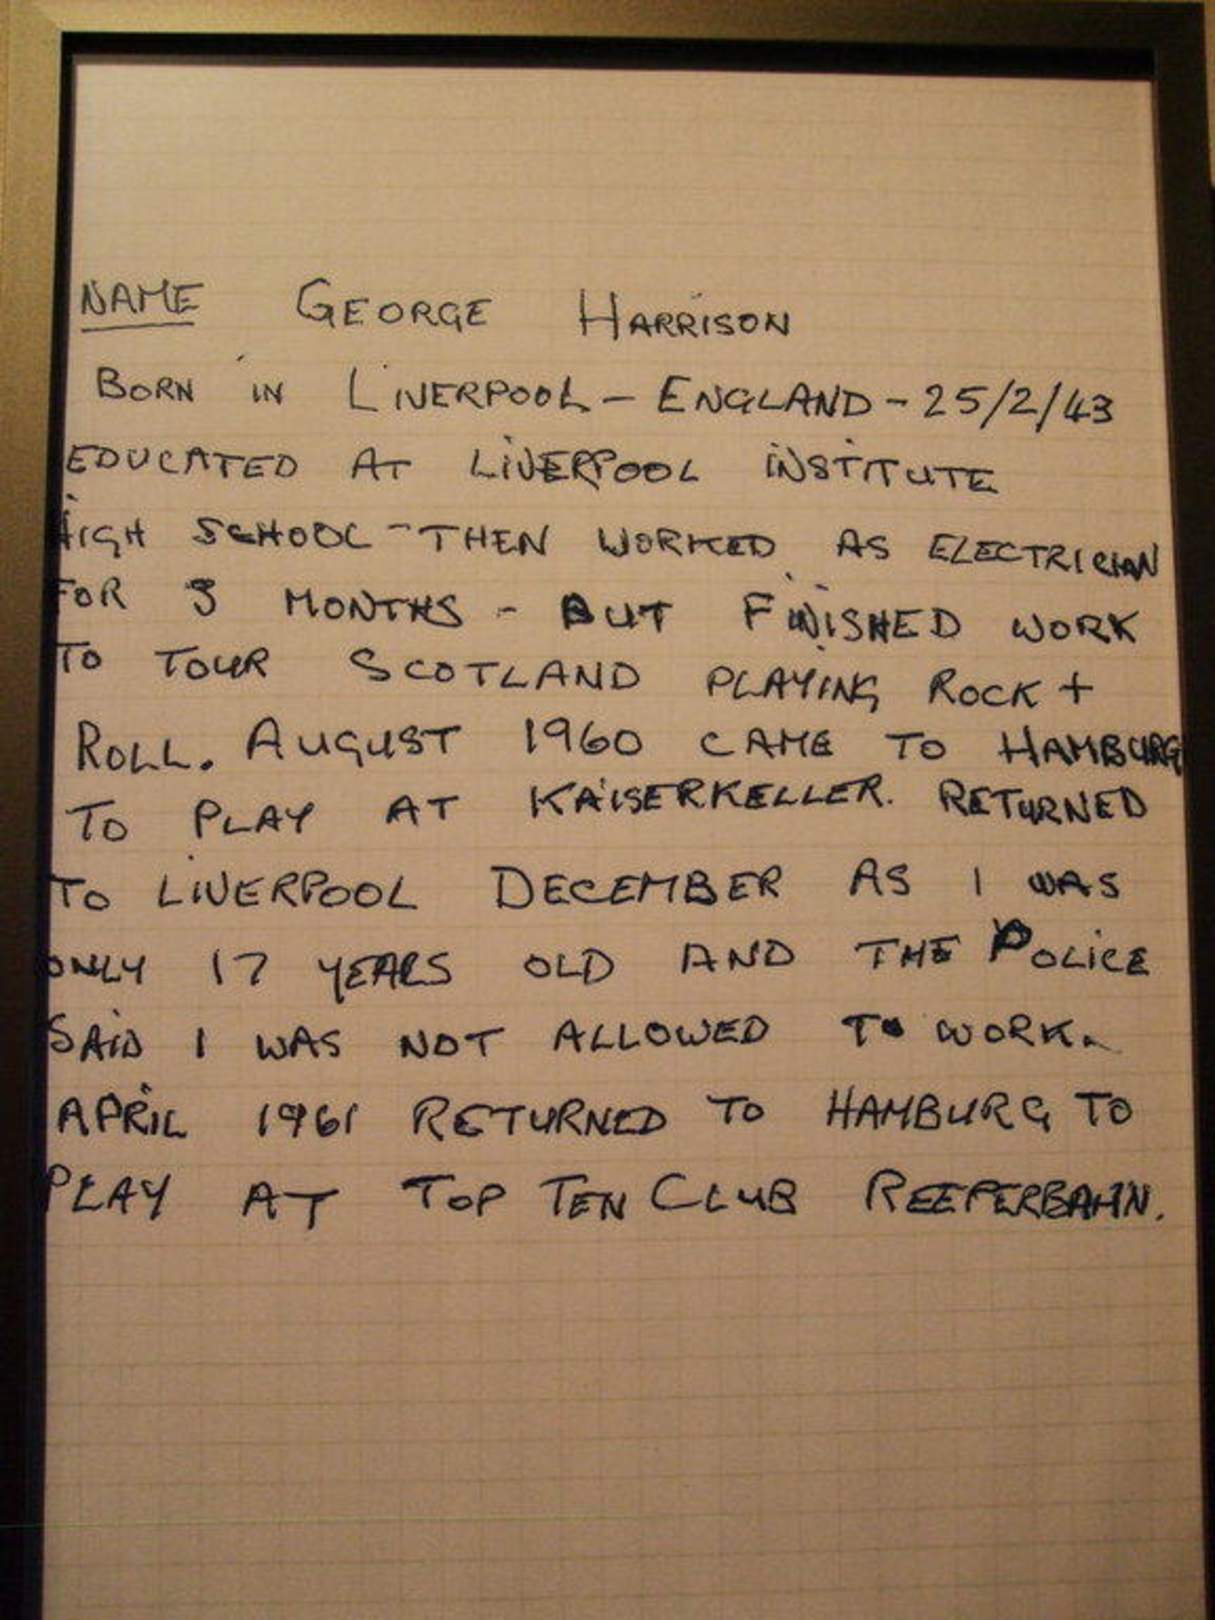 NAME GEORGE HARRISON
BORN IN LIVERPOOL - ENGLAND - 25/2/43
EDUCATED AT LIVERPOOL INSTITUTE
HIGH SCHOOL - THEN WORKED AS ELECTRICIAN
FOR 3 MONTHS - BUT FINISHED WORK
TO TOUR SCOTLAND PLAYING ROCK +
ROLL. AUGUST 1960 CAME TO HAMBURG
TO PLAY AT KAISERKELLER. RETURNED
TO LIVERPOOL DECEMBER AS I WAS
ONLY 17 YEARS OLD AND THE POLICE
SAID I WAS NOT ALLOWED TO WORK.
APRIL 1961 RETURNED TO HAMBURG TO
PLAY AT TOP TEN CLUB REEPERBAHN.